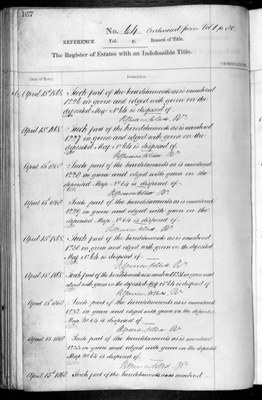 167
No. 64. Continued from Vol 1 p
REFERENCE Vol. p. Record of Title.
The Register of Estates with an Indefeasible Title.
OBSERVATIONS
Date of Entry. Description.
April 15th 1868. Such part of the hereditaments as is numbered
1226 in green and edged with green on the
deposited Map No 64 is disposed of
April 15th 1868. Such part of the hereditaments as is numbered
1227 in green and edged with green on the
deposited Map No 64 is disposed of
April 15th 1868. Such part of the hereditaments as is numbered
1228 in green and edged with green on the
deposited Map No 64 is disposed of
April 15th 1868. Such part of the hereditaments as is numbered
1229 in green and edged with green on the
deposited Map No 64 is disposed of
April 15th 1868. Such part of the hereditaments as is numbered
1230 in green and edged with green on the deposited
Map No 64 is disposed of
April 15th 1868. Such part of the hereditaments as is numbered 1231 in green and
edged with green on the deposited Map No 64 is disposed of
April 15th 1868. Such part of the hereditaments as is numbered
1232 in green and edged with green on the deposited
Map No 64 is disposed of
April 15th 1868. Such part of the hereditaments as is numbered
1233 in green and edged with green on the deposited
Map No 64 is disposed of
April 15th 1868. Such part of the hereditaments as is numbered